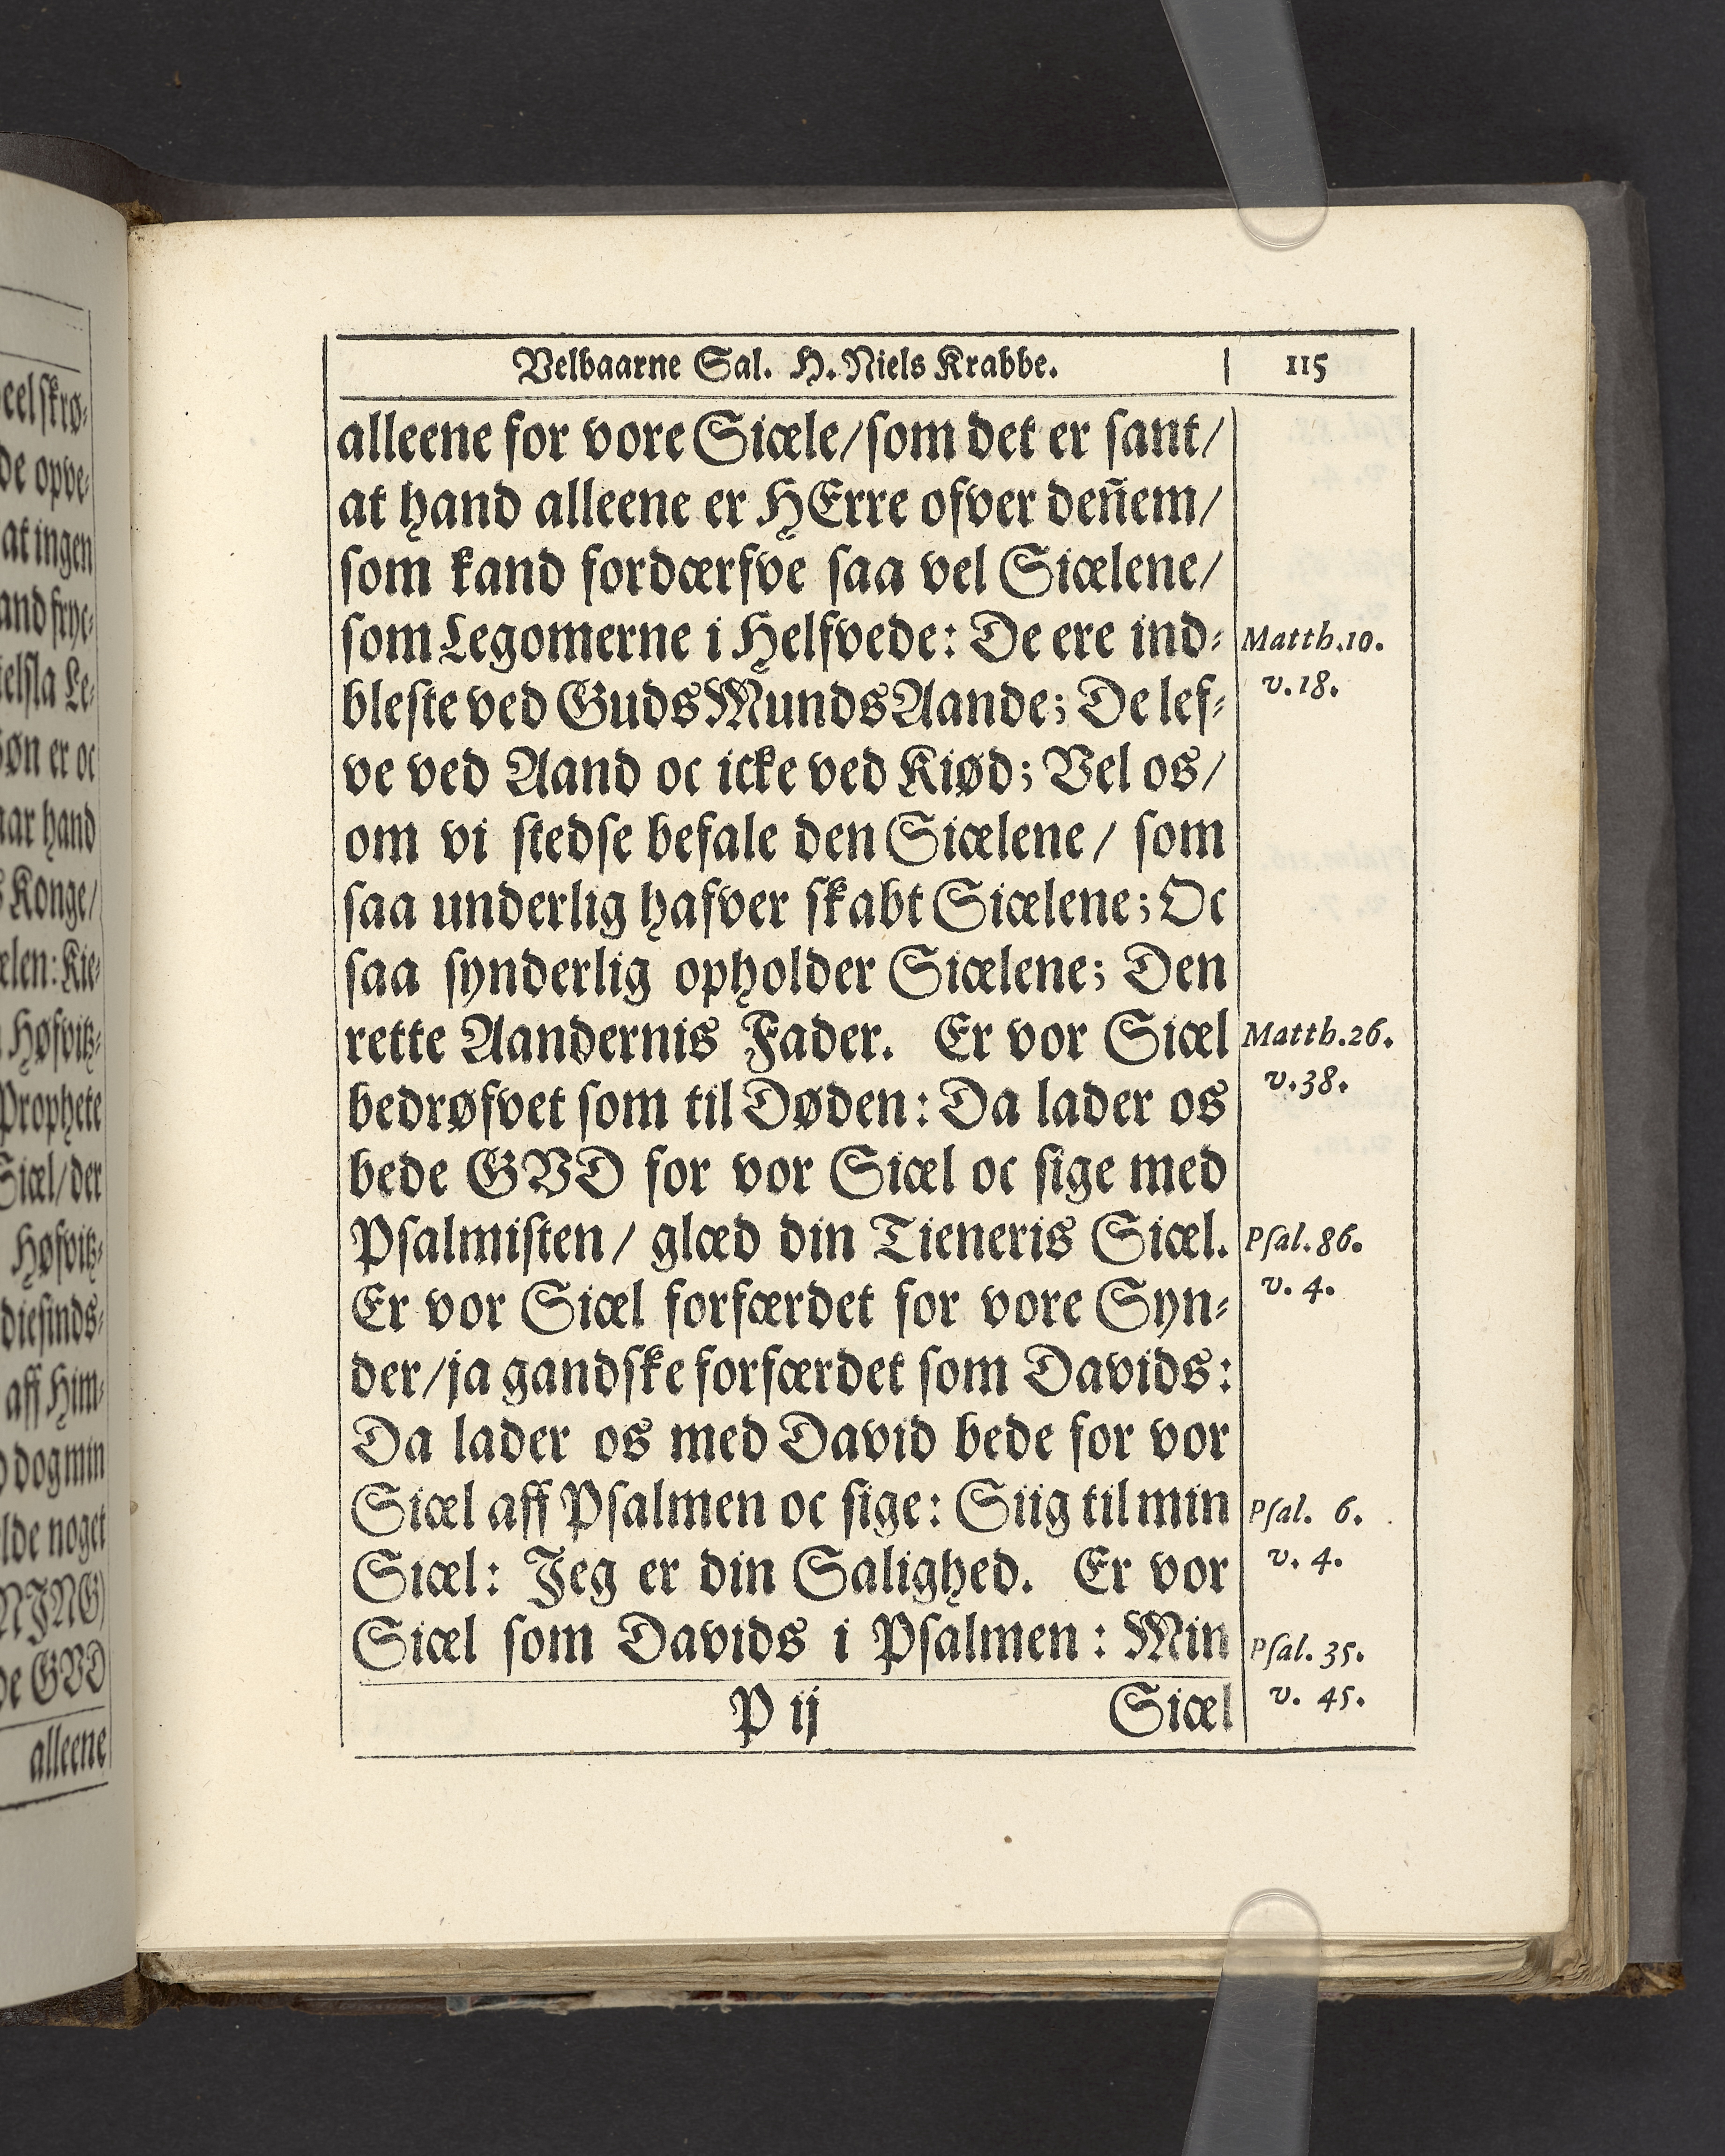 eel skrø-
de opve-
at ingen
and fryc-
ielsla Le-
øn er oc
aar hand
s Konge/
elen: Kie-
Høfvitz-
Prophete
Siæl/ der
Høfvitz-
diesinds-
aff Him-
dog min
lde noget
NJNG
de GVD
alleene
Velbaarne Sal. H. Niels Krabbe. 115
alleene for vore Siæle/ som det er sant/
at hand alleene er HErre ofver den̄em/
som kand fordærfve saa vel Siælene/
som Legomerne i Helfvede: De ere ind-
bleste ved Guds Munds Aande; De lef-
ve ved Aand oc icke ved Kiød; Vel os/
om vi stedse befale den Siælene/ som
saa underlig hafver skabt Siælene; Oc
saa synderlig opholder Siælene; Den
rette Aandernis Fader. Er vor Siæl
bedrøfvet som til Døden: Da lader os
bede GVD for vor Siæl oc sige med
Psalmisten/ glæd din Tieneris Siæl.
Er vor Siæl forfærdet for vore Syn-
der/ ja gandske forfærdet som Davids:
Da lader os med David bede for vor
Siæl aff Psalmen oc sige: Siig til min
Siæl: Jeg er din Salighed. Er vor
Siæl som Davids i Psalmen: Min
P ij Siæl
Matth.10.
v.18.
Matth.26.
v.38.
Psal.86.
v. 4.
Psal. 6.
v. 4.
Psal. 35.
v. 45.